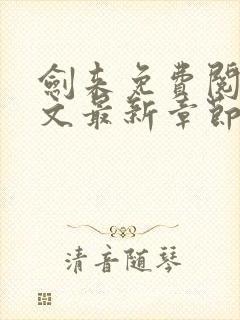 劍来免費閱
文最新章節
清音随琴